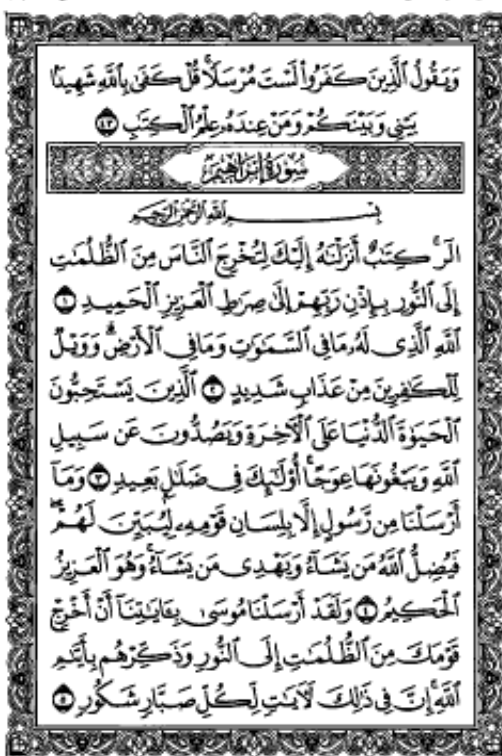 وَيَقُولُ ٱلَّذِينَ كَفَرُوا۟ لَسْتَ مُرْسَلًا ۚ قُلْ كَفَىٰ بِٱللَّهِ شَهِيدًۢا
بَيْنِى وَبَيْنَكُمْ وَمَنْ عِندَهُۥ عِلْمُ ٱلْكِتَٰبِ ٤٣
سُورَةُ إِبْرَاهِيمَ
بِسْمِ ٱللَّهِ ٱلرَّحْمَٰنِ ٱلرَّحِيمِ
الٓر ۚ كِتَٰبٌ أَنزَلْنَٰهُ إِلَيْكَ لِتُخْرِجَ ٱلنَّاسَ مِنَ ٱلظُّلُمَٰتِ
إِلَى ٱلنُّورِ بِإِذْنِ رَبِّهِمْ إِلَىٰ صِرَٰطِ ٱلْعَزِيزِ ٱلْحَمِيدِ ١
ٱللَّهِ ٱلَّذِى لَهُۥ مَا فِى ٱلسَّمَٰوَٰتِ وَمَا فِى ٱلْأَرْضِ ۗ وَوَيْلٌ
لِّلْكَٰفِرِينَ مِنْ عَذَابٍ شَدِيدٍ ٢ ٱلَّذِينَ يَسْتَحِبُّونَ
ٱلْحَيَوٰةَ ٱلدُّنْيَا عَلَى ٱلْءَاخِرَةِ وَيَصُدُّونَ عَن سَبِيلِ
ٱللَّهِ وَيَبْغُونَهَا عِوَجًا ۚ أُو۟لَٰٓئِكَ فِى ضَلَٰلٍۭ بَعِيدٍ ٣ وَمَآ
أَرْسَلْنَا مِن رَّسُولٍ إِلَّا بِلِسَانِ قَوْمِهِۦ لِيُبَيِّنَ لَهُمْ ۖ
فَيُضِلُّ ٱللَّهُ مَن يَشَآءُ وَيَهْدِى مَن يَشَآءُ ۚ وَهُوَ ٱلْعَزِيزُ
ٱلْحَكِيمُ ٤ وَلَقَدْ أَرْسَلْنَا مُوسَىٰ بِـَٔايَٰتِنَآ أَنْ أَخْرِجْ
قَوْمَكَ مِنَ ٱلظُّلُمَٰتِ إِلَى ٱلنُّورِ وَذَكِّرْهُم بِأَيَّىٰمِ
ٱللَّهِ ۚ إِنَّ فِى ذَٰلِكَ لَءَايَٰتٍ لِّكُلِّ صَبَّارٍ شَكُورٍ ٥